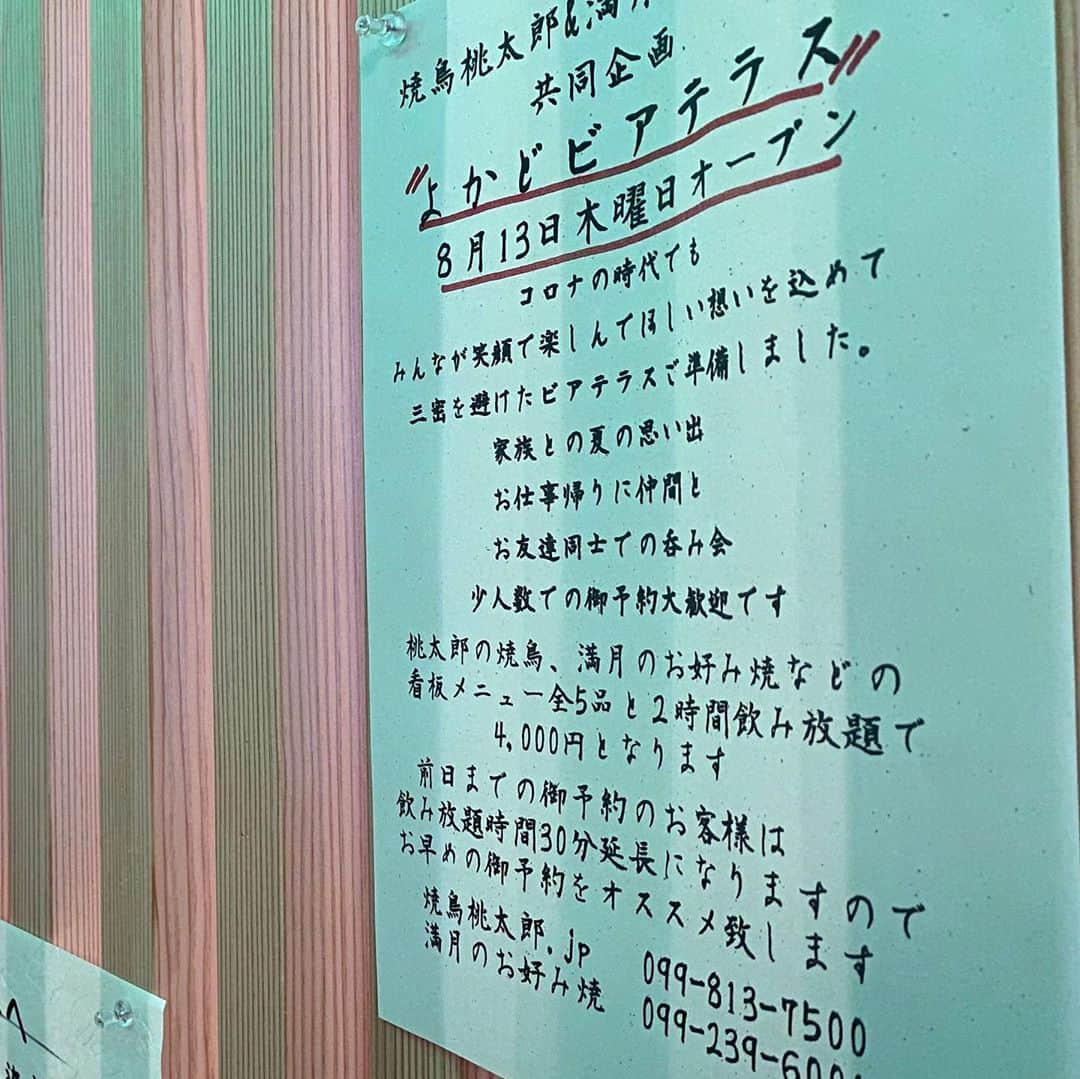 焼鳥桃太郎&満月
共同企画
〃よかどビアテラス〃
8月13日木曜日オープン
コロナの時代でも
みんなが笑顔で楽しんでほしい想いを込めて
三密を避けたビアテラスご準備しました。
家族との夏の思い出
お仕事帰りに仲間と
お友達同士での呑み会
少人数での御予約大歓迎です
桃太郎の焼鳥、満月のお好み焼などの
看板メニュー全5品と2時間飲み放題で
4,000円となります
前日までの御予約のお客様は
飲み放題時間30分延長になりますので
お早めの御予約をオススメ致します
焼鳥桃太郎.jp 099-813-7500
満月のお好み焼 099-239-600